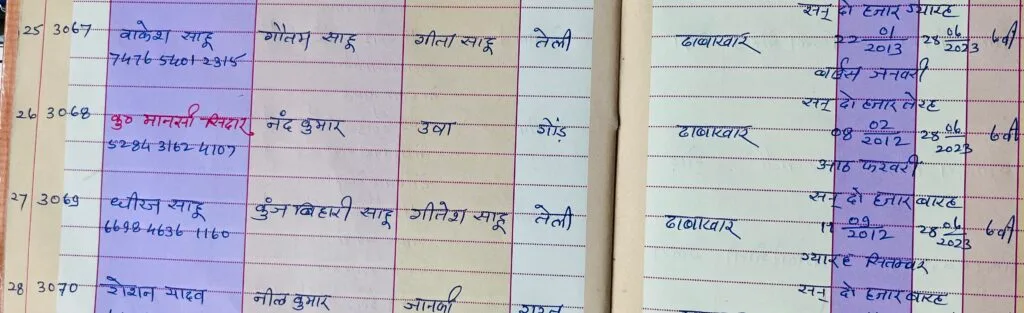 सन् दो हजार ग्यारह
25 3067 वाकेश साहू गौतम साहू गीता साहू तेली ढाबाखार 22 01/2013 28 06/2023 6वी
7476 5401 2315
बाईस जनवरी
सन् दो हजार तेरह
26 3068 कु० मानसी सिदार नंद कुमार उषा गोंड़ ढाबाखार 08 02/2012 28 06/2023 6वी
5284 3162 4107
आठ फरवरी
सन् दो हजार बारह
27 3069 धीरज साहू कुंज बिहारी साहू गीतेश साहू तेली ढाबाखार 11 09/2012 28 06/2023 6वी
6698 4636 1160
ग्यारह सितम्बर
सन् दो हजार बारह
28 3070 रोशन यादव नील कुमार जानकी